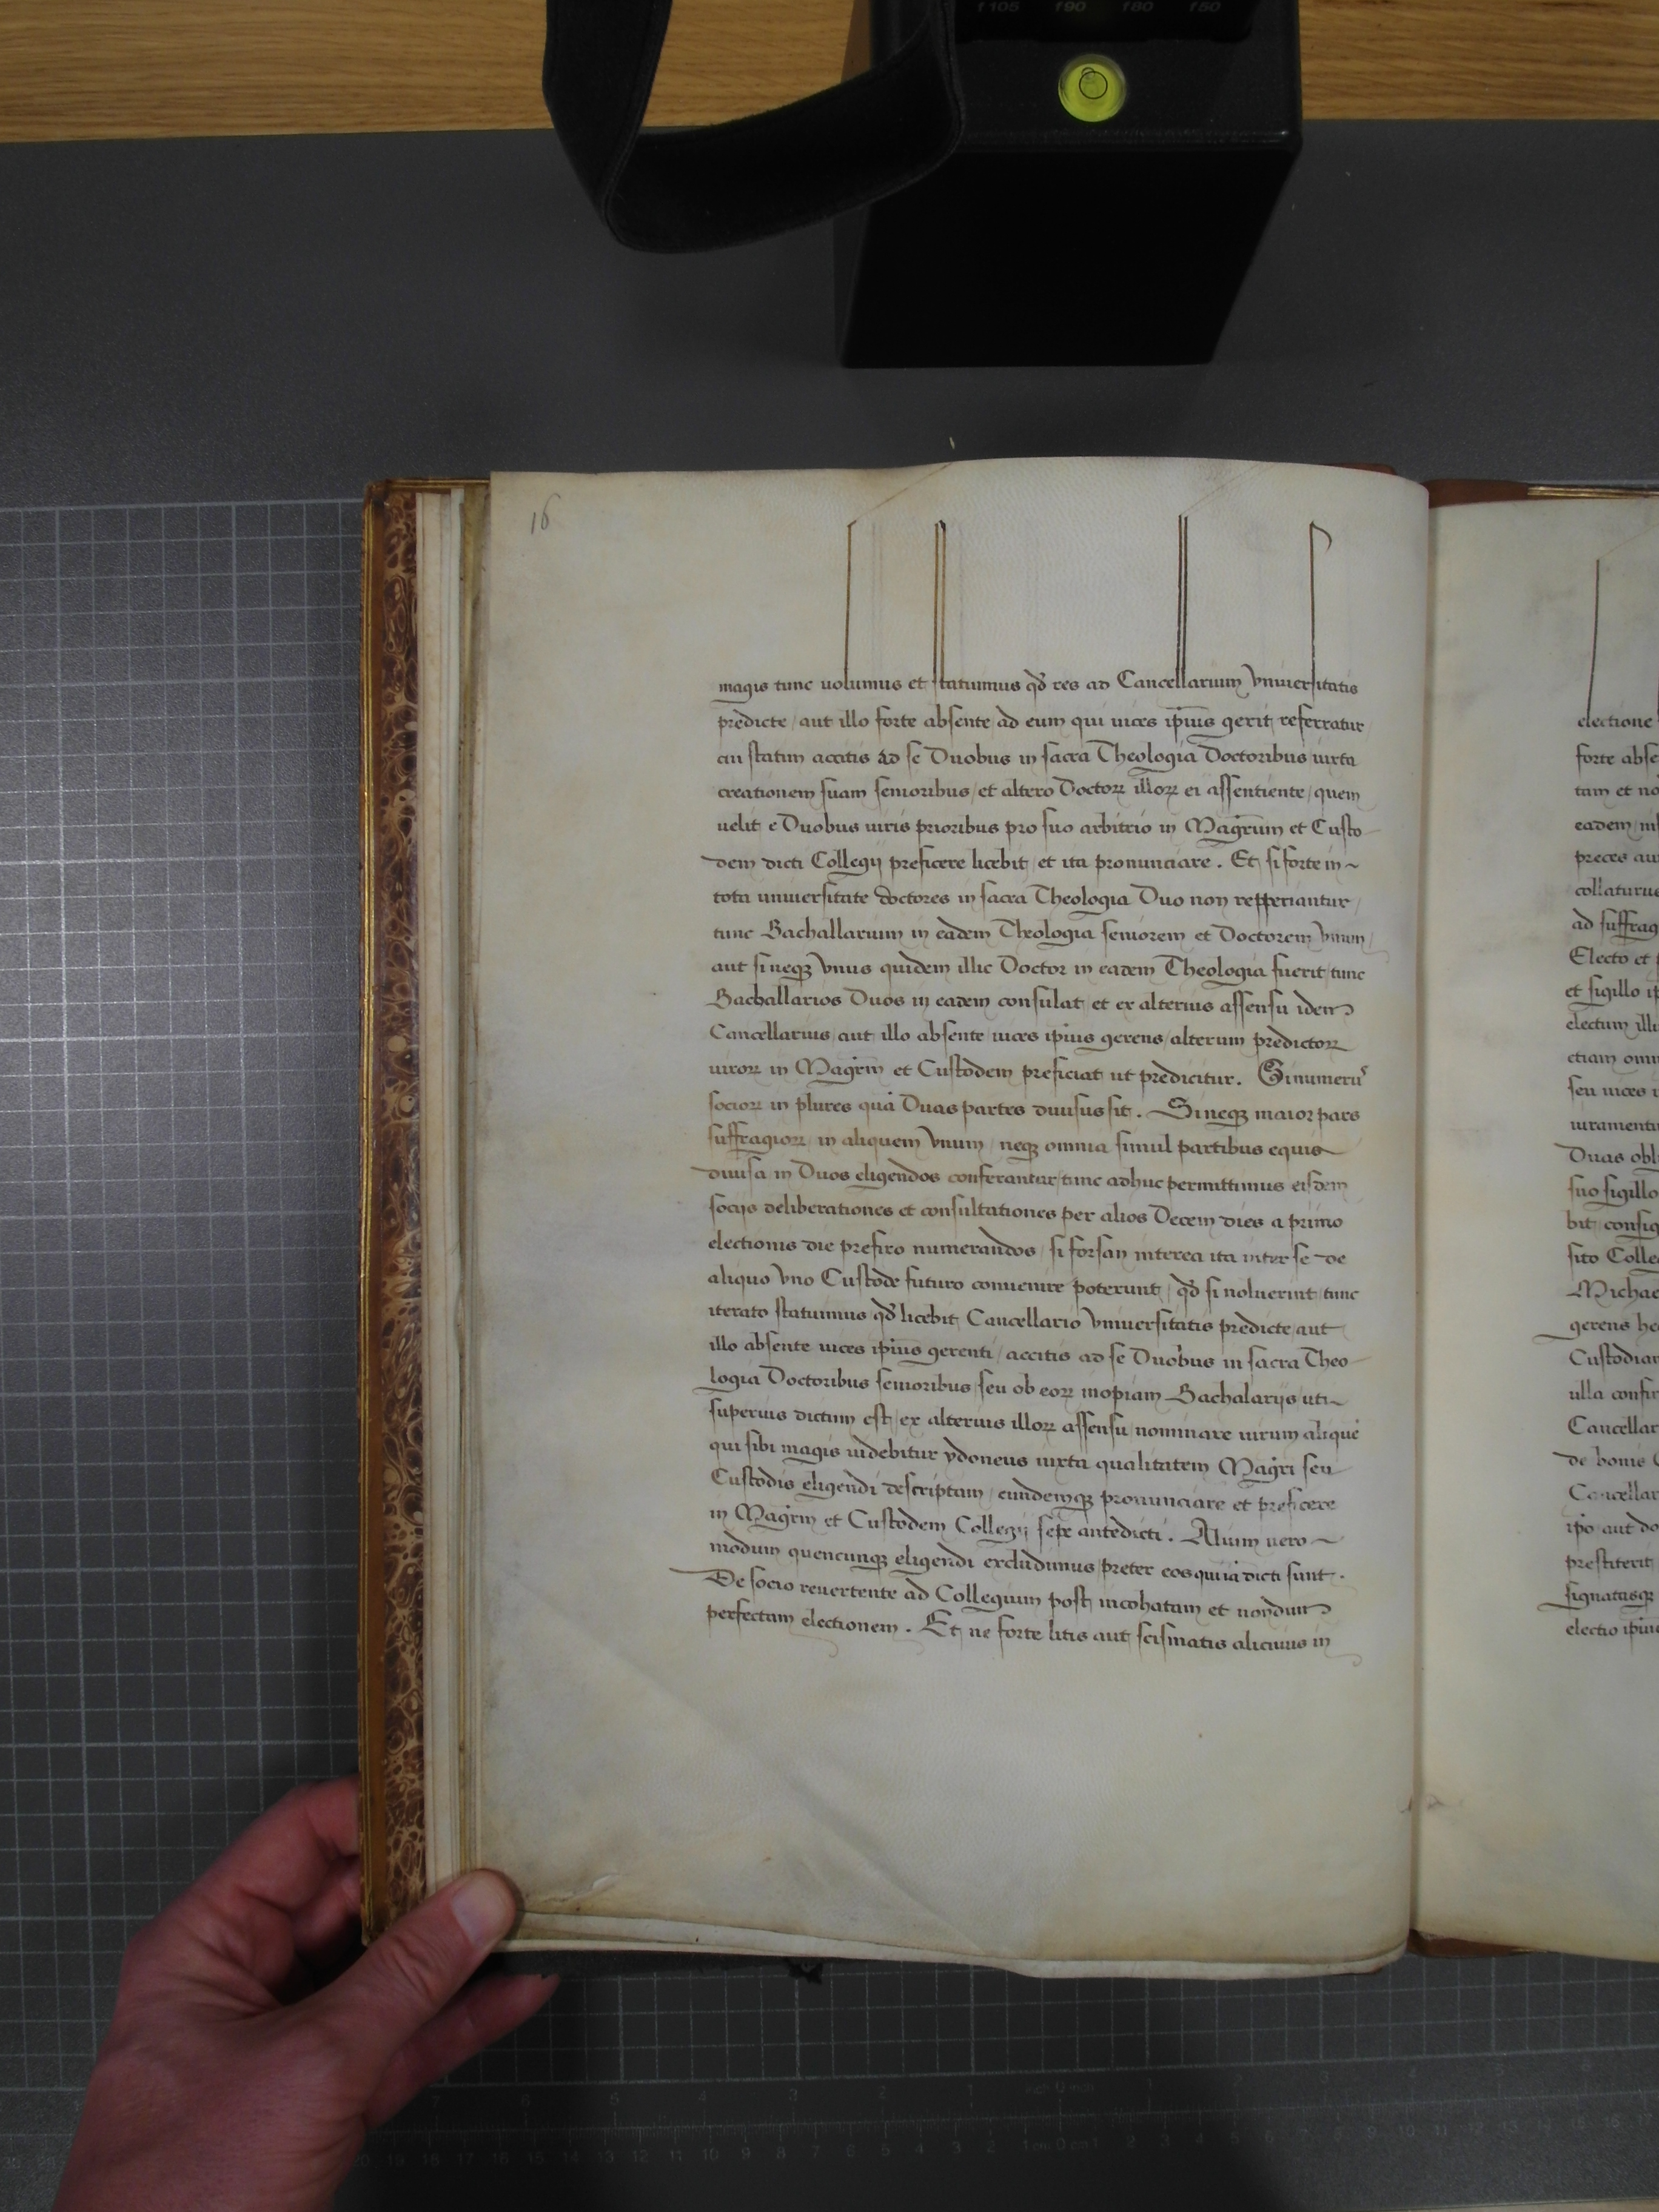 f105 f90 f80 f50
16
magis tunc uolumus et statuimus qđ res ad Cancellarium Vniuersitatis
predicte / aut illo forte absente / ad eum qui uices ip̄ius gerit / referratur
cui statim accitis ad se Duobus in sacra Theologia Doctoribus iuxta
creationem suam senioribus / et altero Doctoꝝ illoꝝ ei assentiente / quem
uelit e Duobus uiris prioribus pro suo arbitrio in Magr̄um et Custo-
dem dicti Collegij preficere licebit / et ita pronunciare . Et si forte in ~
tota uniuersitate doctores in sacra Theologia Duo non repperiantur /
tunc Bachallarium in eadem Theologia seniorem et Doctorem Vnum /
aut si neqꝫ Vnus quidem illic Doctor in eadem Theologia fuerit / tunc
Bachallarios Duos in eadem consulat / et ex alterius assensu idem
Cancellarius / aut illo absente / uices ip̄ius gerens / alterum predictoꝝ
uiroꝝ in Magr̄m et Custodem preficiat ut predicitur . Si numerū
socioꝝ in plures quā Duas partes diuisus sit . Si neqꝫ maior pars
suffragioꝝ / in aliquem Vnum / neqꝫ omnia simul partibus equis
diuisa in Duos eligendos conferantur / tunc adhuc permittimus eisdem
socijs deliberationes et consultationes per alios Decem dies a primo
electionis die prefixo numerandos / si forsan interea ita inter se de
aliquo Vno Custode futuro conuenire poterunt / qđ si noluerint / tunc
iterato statuimus qđ licebit Cancellario Vniuersitatis predicte / aut
illo absente uices ip̄ius gerenti / accitis ad se Duobus in sacra Theo-
logia Doctoribus senioribus / seu ob eoꝝ inopiam Bachalarijs / uti ~
superius dictum est / ex alterius illoꝝ assensu / nominare uirum aliquē
qui sibi magis uidebitur ydoneus iuxta qualitatem Magr̄i seu
Custodis eligendi descriptam / eundemqꝫ pronunciare et preficere
in Magr̄m et Custodem Collegij sepe antedicti . Alium uero ~
modum quencunqꝫ eligendi excludimus / preter eos qui iā dicti sunt .
De socio reuertente ad Collegium post incohatam et nondum
perfectam electionem . Et ne forte litis aut scismatis alicuius in
electione
forte abse
tam et no
eadem
preces au
collaturus
ad suffrag
Electo et
et sigillo
electum
etiam omn
seu uices
iuramentu
Duas obl
suo sigillo
bit consig
sito Colle
Michae
gerens he
Custodiam
ulla confir
Cancellar
de bonis
Cancellar
ip̄o aut do
prestiterit
signatasqꝫ
electio ip̄iu